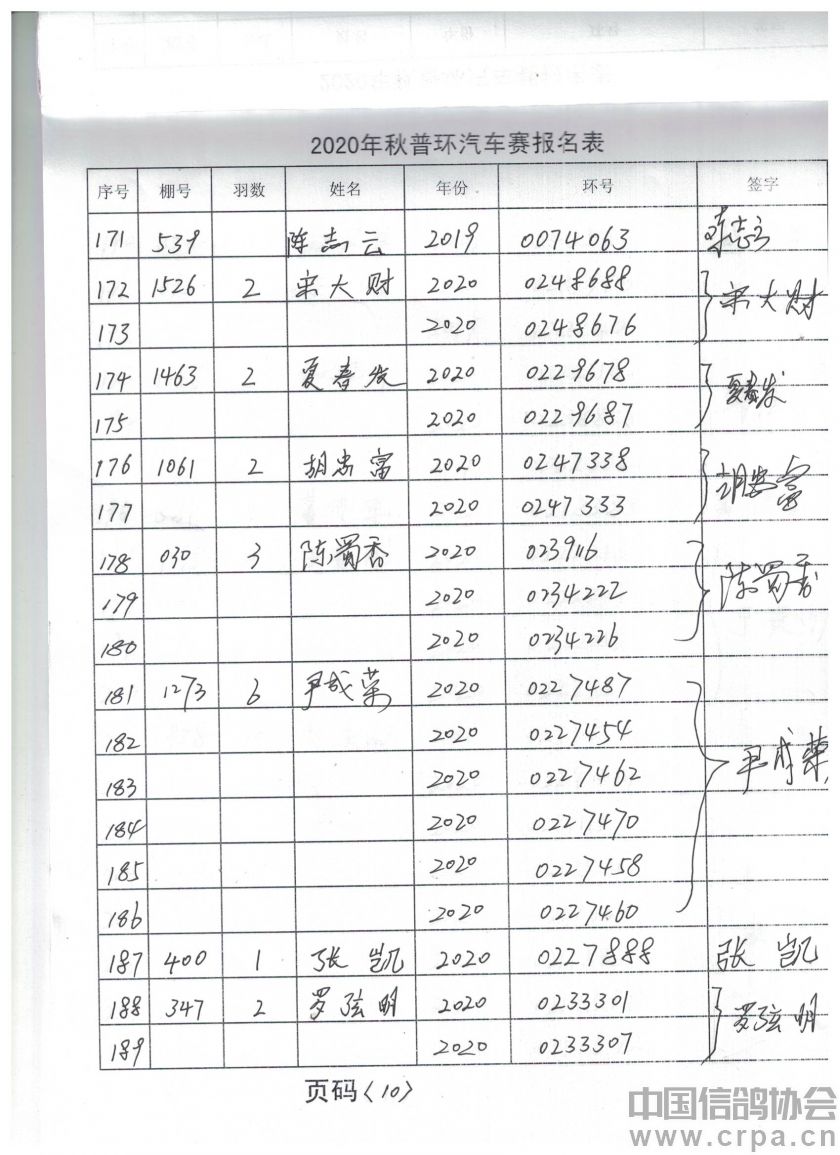 2020年秋普环汽车赛报名表
序号 棚号 羽数 姓名 年份 环号 签字
171 539 陈志云 2019 0074063 陈志云
172 1526 2 宋大财 2020 0248688 宋大财
173 2020 0248676
174 1463 2 夏春发 2020 0229678 夏春发
175 2020 0229687
176 1061 2 胡忠富 2020 0247338 胡忠富
177 2020 0247333
178 030 3 陈蜀香 2020 023916 陈蜀香
179 2020 0234222
180 2020 0234226
181 1273 6 尹成荣 2020 0227487 尹成荣
182 2020 0227454
183 2020 0227462
184 2020 0227470
185 2020 0227458
186 2020 0227460
187 400 1 张凯 2020 0227888 张凯
188 347 2 罗弦明 2020 0233301 罗弦明
189 2020 0233307
页码〈10〉
中国信鸽协会
www.crpa.cn